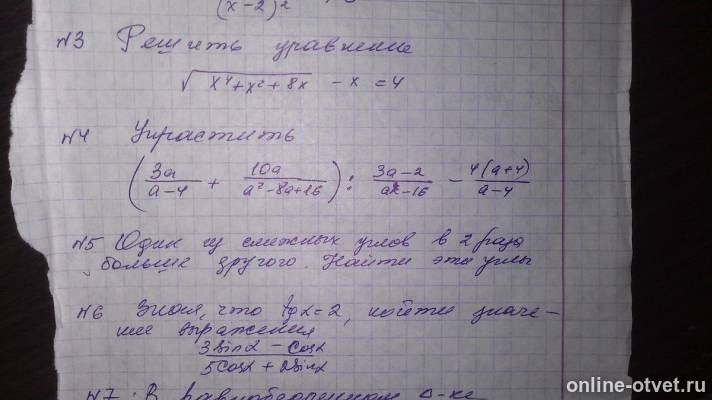 (x-2)²
N3 Решить уравнение
√(x⁴+x²+8x) - x = 4
N4 Упростить
(3a/(a-4) + 10a/(a²-8a+16)) : (3a-2)/(a²-16) - 4(a+4)/(a-4)
N5 Один из смежных углов в 2 раза
больше другого. Найти эти углы
N6 Зная, что tgα=2, найти значе-
ние выражения
(3sinα - cosα)/(5cosα + 2sinα)
N7. В равнобедренном
online-otvet.ru